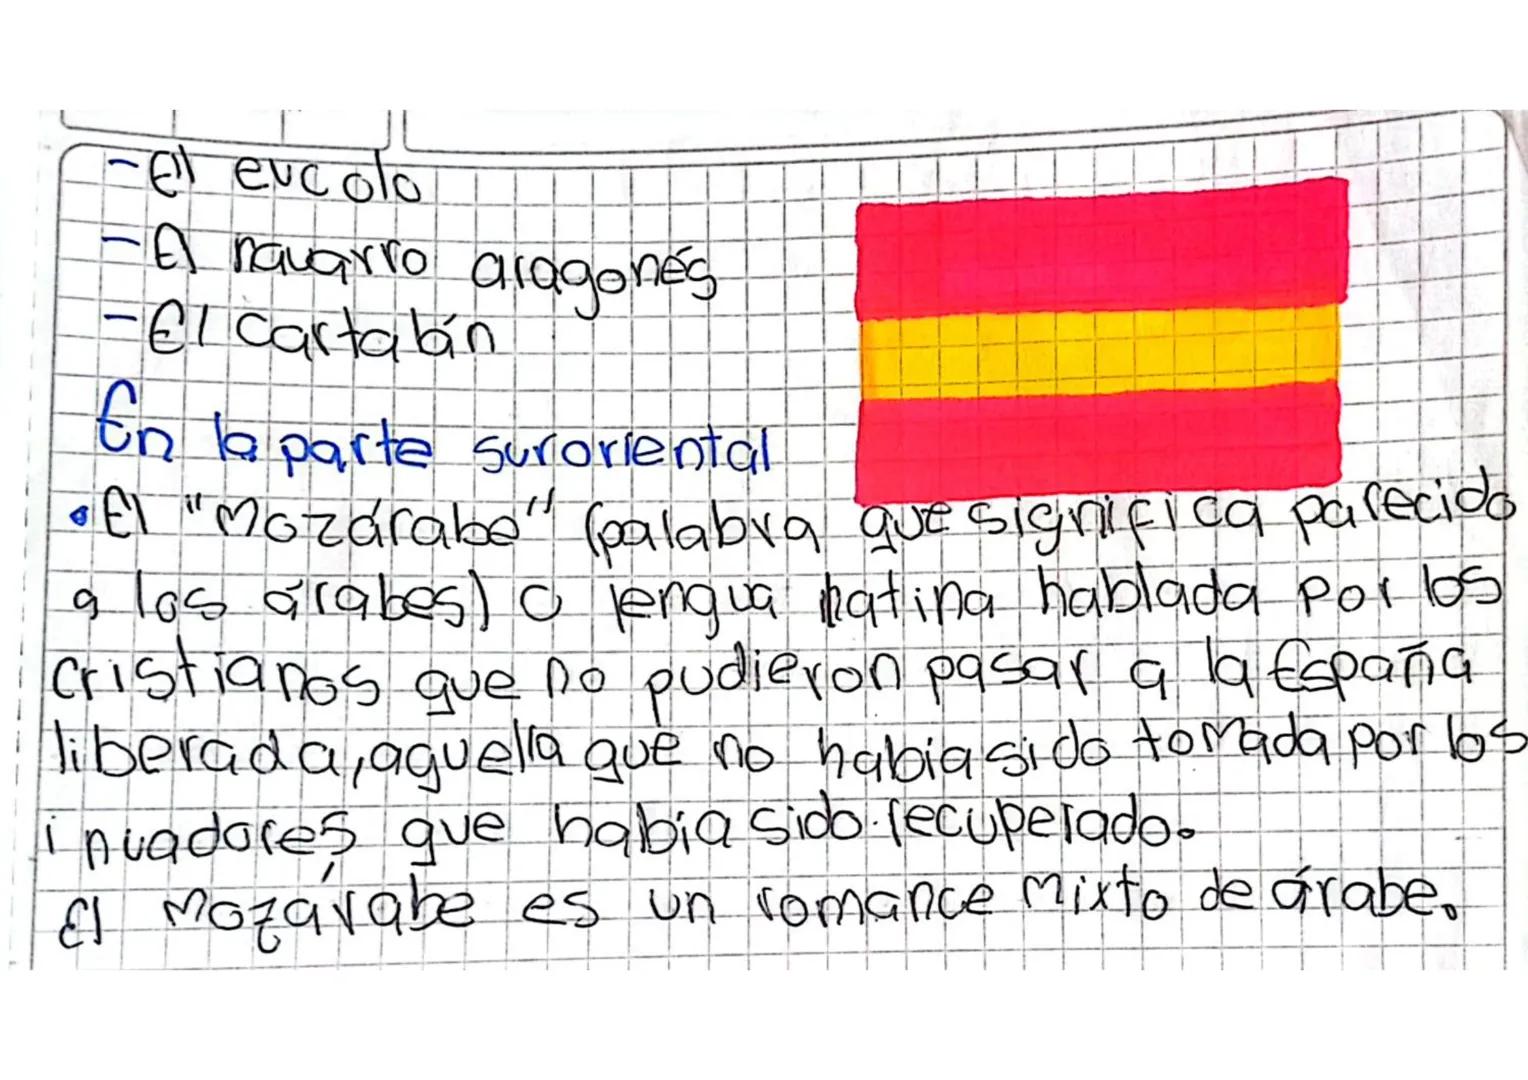 -El eucolo
-El navarro aragonés
-El cartabín
En la parte suroriental
•El "Mozárabe" (palabra que significa parecido
a los árabes) o lengua hatina hablada por los
cristianos que no pudieron pasar a la España
liberada, aquella que no habia sido tomada por los
invadores que habia sido recuperado.
El Mozárabe es un romance mixto de árabe.